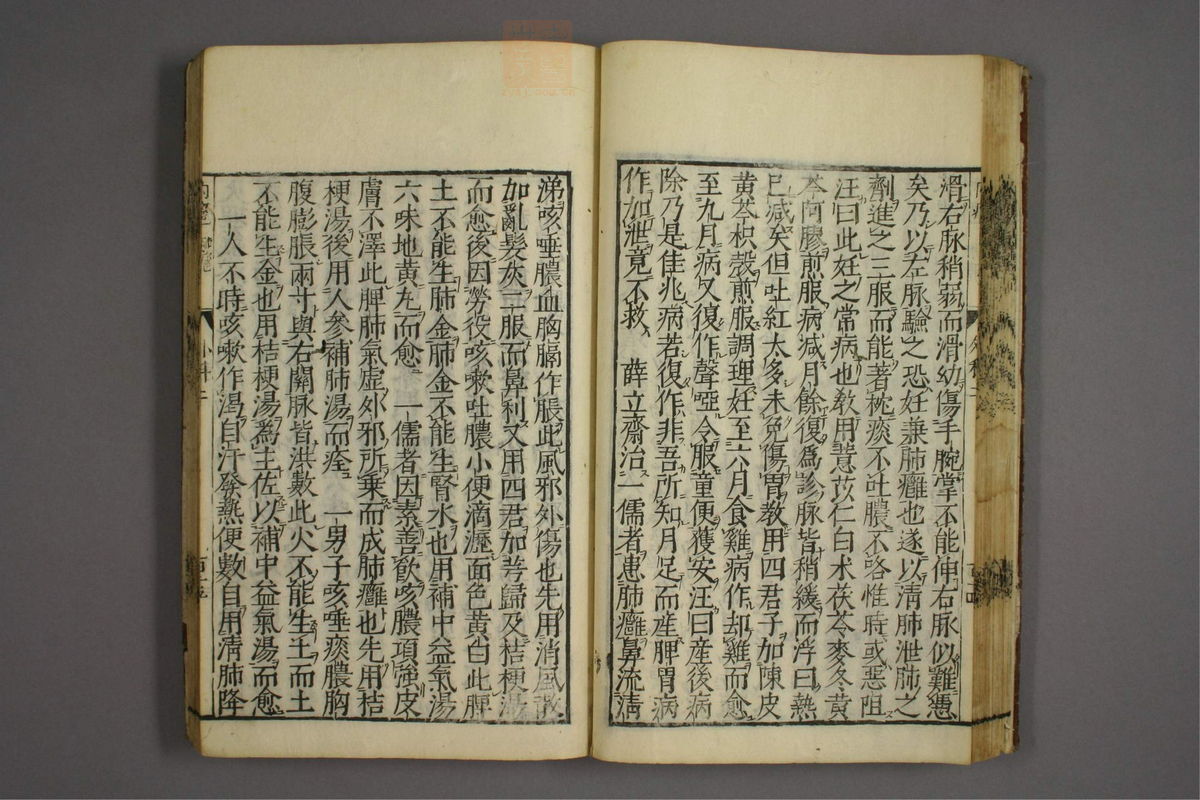 滑右脉稍弱而滑幼傷手腕掌不能伸右脉似難憑
矣乃以左脉驗之恐妊兼肺癰也遂以清肺泄肺之
劑進之三服而能著枕痰不吐膿不咯惟時或惡阻
汪曰此妊之常病也教用薏苡仁白术茯苓麥冬黄
芩阿膠煎服病減月餘復爲診脉皆稍緩而浮曰熱
已減矣但吐紅太多未免傷胃教用四君子加陳皮
黄芩枳殼煎服調理妊至六月食雞病作却雞而愈
至九月病又復作聲啞令服童便獲安汪曰産後病
除乃是佳兆病若復作非吾所知月足而産脾胃病
作加泄竟不救 薛立齋治一儒者患肺癰鼻流清
涕咳唾膿血胸膈作脹此風邪外傷也先用消風散
加亂髮灰二服而鼻利又用四君加芎歸及桔梗湯
而愈後因勞役咳嗽吐膿小便滴瀝面色黄白此脾
土不能生肺金肺金不能生腎水也用補中益氣湯
六味地黄丸而愈 一儒者因素善飲咳膿項強皮
膚不澤此脾肺氣虚外邪所乗而成肺癰也先用桔
梗湯後用人參補肺湯而痊 一男子咳唾痰膿胸
腹膨脹兩寸與右關脉皆洪數此火不能生土而土
不能生金也用桔梗湯爲主佐以補中益氣湯而愈
一人不時咳嗽作渴自汗發熱便數自用清肺降